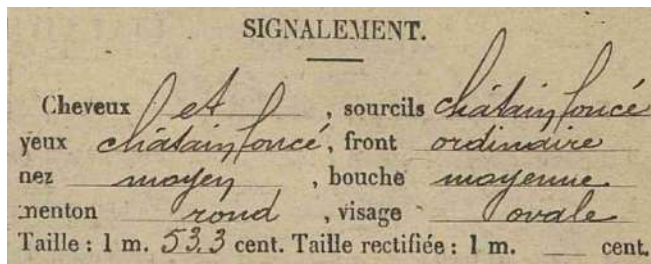 SIGNALEMENT.
Cheveux et , sourcils châtain foncé
yeux châtain foncé, front ordinaire
nez moyen , bouche moyenne
menton rond , visage ovale
Taille : 1 m. 53,3 cent. Taille rectifiée : 1 m. cent.